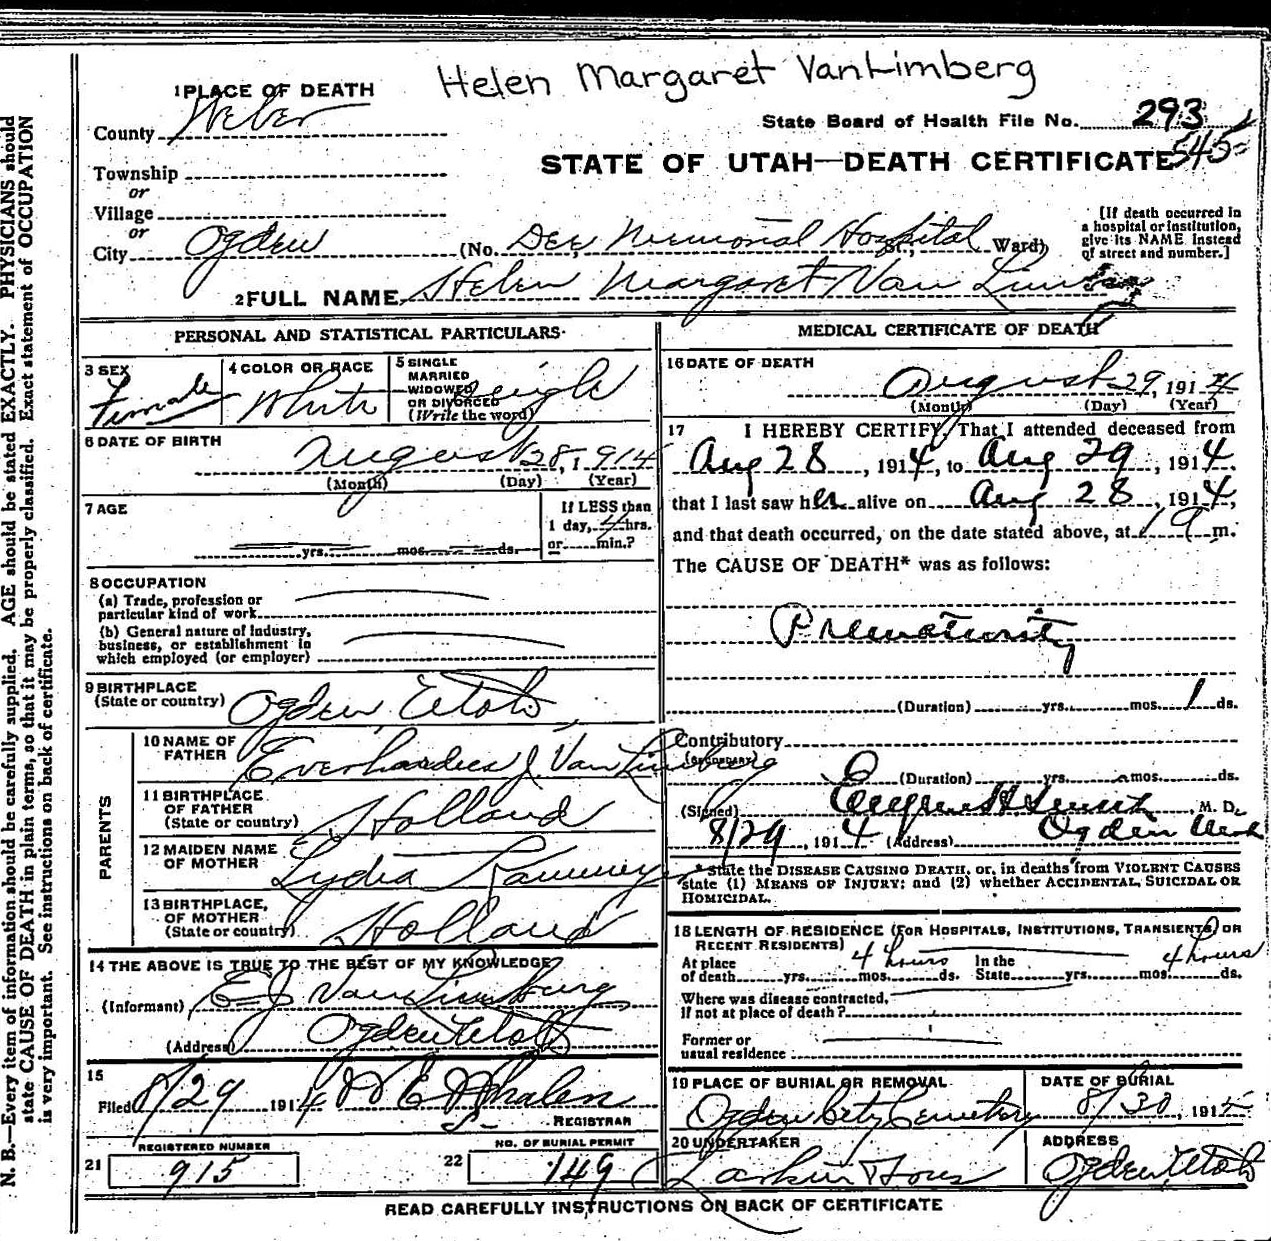 Helen Margaret VanLimberg
1 PLACE OF DEATH
County Weber
State Board of Health File No. 293
545
STATE OF UTAH—DEATH CERTIFICATE
Township
or
Village
or
City Ogden (No. Dee Memorial Hospital St., Ward)
[If death occurred in
a hospital or institution,
give its NAME instead
of street and number.]
2 FULL NAME Helen Margaret Van
PERSONAL AND STATISTICAL PARTICULARS
3 SEX
Female
4 COLOR OR RACE
White
5 SINGLE
MARRIED
WIDOWED
OR DIVORCED
(Write the word)
Single
6 DATE OF BIRTH
August 28, 1914
(Month) (Day) (Year)
7 AGE
yrs. mos. ds.
If LESS than
1 day, 4 hrs.
or min.?
8 OCCUPATION
(a) Trade, profession or
particular kind of work
(b) General nature of industry,
business, or establishment in
which employed (or employer)
9 BIRTHPLACE
(State or country) Ogden, Utah
PARENTS
10 NAME OF
FATHER Everhardus J. Van Limburg
11 BIRTHPLACE
OF FATHER
(State or country) Holland
12 MAIDEN NAME
OF MOTHER Lydia
13 BIRTHPLACE,
OF MOTHER
(State or country) Holland
14 THE ABOVE IS TRUE TO THE BEST OF MY KNOWLEDGE
(Informant) E J Van Limburg
(Address) Ogden Utah
15
Filed 8/29 1914 W E Whalen
REGISTRAR
REGISTERED NUMBER
21 915
NO. OF BURIAL PERMIT
22 149
MEDICAL CERTIFICATE OF DEATH
16 DATE OF DEATH
August 29, 1914
(Month) (Day) (Year)
17 I HEREBY CERTIFY, That I attended deceased from
Aug 28, 1914, to Aug 29, 1914.
that I last saw her alive on Aug 28, 1914,
and that death occurred, on the date stated above, at 1 a m.
The CAUSE OF DEATH* was as follows:
Prematurity
(Duration) yrs. mos. 1 ds.
Contributory
(SECONDARY)
(Duration) yrs. mos. ds.
(Signed) Eugene H Smith, M. D.
8/29, 1914 (Address) Ogden Utah
*State the DISEASE CAUSING DEATH, or, in deaths from VIOLENT CAUSES
state (1) MEANS OF INJURY; and (2) whether ACCIDENTAL, SUICIDAL OR
HOMICIDAL.
18 LENGTH OF RESIDENCE (FOR HOSPITALS, INSTITUTIONS, TRANSIENTS, OR
RECENT RESIDENTS)
At place 4 hours In the 4 hours
of death yrs. mos. ds. State yrs. mos. ds.
Where was disease contracted,
if not at place of death?
Former or
usual residence
19 PLACE OF BURIAL OR REMOVAL
Ogden City Cemetery
DATE OF BURIAL
8/30, 1914
20 UNDERTAKER
Larkin & Sons
ADDRESS
Ogden, Utah
READ CAREFULLY INSTRUCTIONS ON BACK OF CERTIFICATE
N. B.—Every item of information should be carefully supplied. AGE should be stated EXACTLY. PHYSICIANS should
state CAUSE OF DEATH in plain terms, so that it may be properly classified. Exact statement of OCCUPATION
is very important. See instructions on back of certificate.